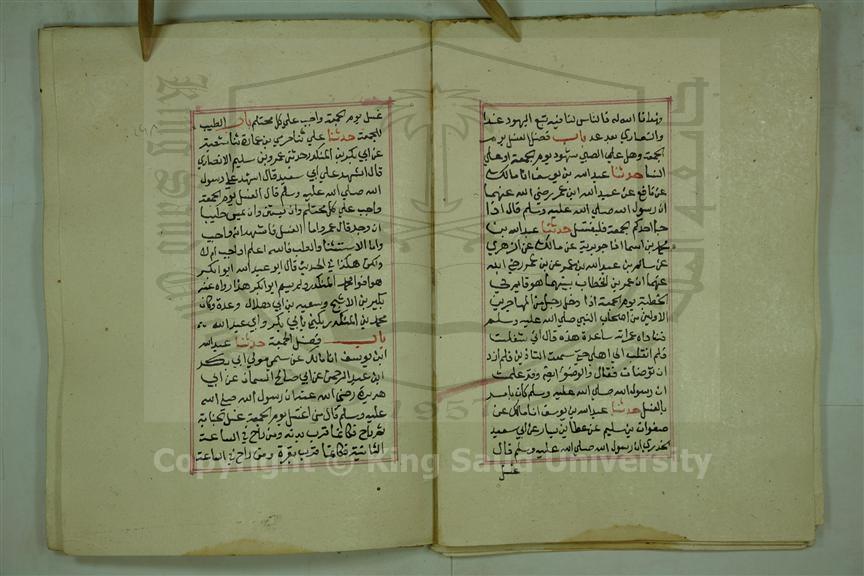 وهدانا الله له فالناس لنا فيه تبع اليهود غدا
والنصارى بعد غد باب فضل الغسل يوم
الجمعة وهل على الصبي شهود يوم الجمعة او على
النسا حدثنا عبدالله بن يوسف انا مالك
عن نافع عن عبدالله ابن عمر رضي الله عنهما
ان رسول الله صلى الله عليه وسلم قال اذا
جا احدكم الجمعة فليغتسل حدثنا عبدالله بن
محمد بن اسما انا جويرية عن مالك عن الزهري
عن سالم بن عبدالله بن عمر عن بن عمر رضي الله
عنهما ان عمر بن الخطاب بينما هو قايم في
الخطبة يوم الجمعة اذا دخل رجل من المهاجرين
الاولين من اصحاب النبي صلى الله عليه وسلم
فناداه عمر اية ساعة هذه قال اني شغلت
فلم انقلب الى اهلي حتى سمعت التاذين فلم ازد
ان توضات فقال والوضو ايضا وقد علمت
ان رسول الله صلى الله عليه وسلم كان يامر
بالغسل حدثنا عبدالله بن يوسف انا مالك عن
صفوان بن سليم عن عطا بن يسار عن ابي سعيد
الخدري ان رسول الله صلى الله عليه وسلم قال
غسل
غسل يوم الجمعة واجب على كل محتلم باب الطيب
للجمعة حدثنا علي ثنا حرمي بن عمارة ثنا شعبة
عن ابي بكر بن المنكدر حدثني عمرو بن سليم الانصاري
قال اشهد على ابي سعيد قال اشهد على رسول
الله صلى الله عليه وسلم قال الغسل يوم الجمعة
واجب على كل محتلم وان يستن وان يمس طيبا
ان وجد قال عمرو اما الغسل فاشهد انه واجب
واما الاستنان والطيب فالله اعلم اواجب ام لا
ولكن هكذا في الحديث قال ابو عبدالله ابو بكر
هو اخو محمد المنكدر ولم يسم ابو بكر هذا رواه عنه
بكير بن الاشج وسعيد بن ابي هلال وعدة وكان
محمد بن المنكدر يكنى بابي بكر وابي عبدالله
باب فضل الجمعة حدثنا عبدالله
ابن يوسف انا مالك عن سمى مولى ابي بكر
ابن عبدالرحمن عن ابي صالح السمان عن ابي
هريرة رضي الله عنه ان رسول الله صلى الله
عليه وسلم قال من اغتسل يوم الجمعة غسل الجنابة
ثم راح فكانما قرب بدنة ومن راح في الساعة
الثانية فكانما قرب بقرة ومن راح في الساعة
Copyright © King Saud University
1957